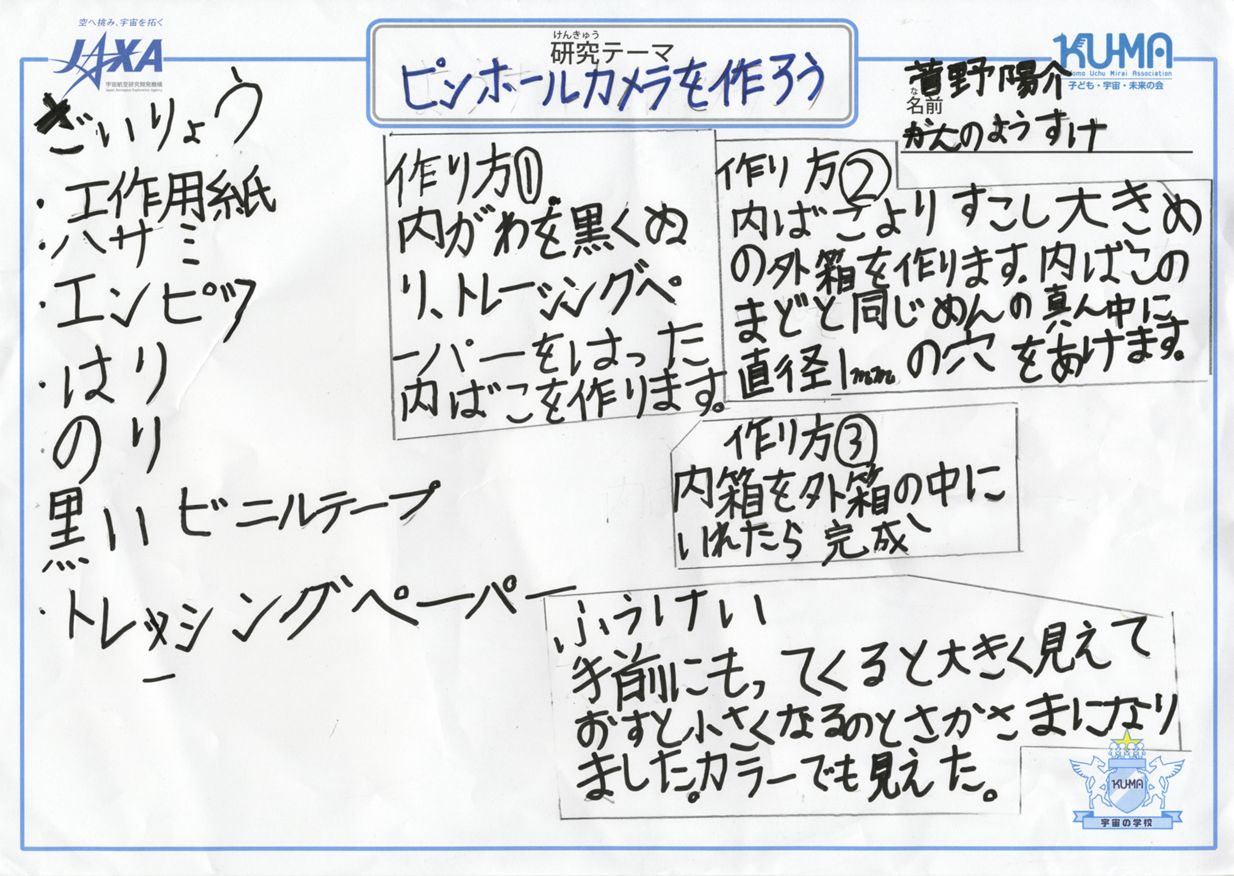 空へ挑み、宇宙を拓く
JAXA
宇宙航空研究開発機構
Japan Aerospace Exploration Agency
けんきゅう
研究テーマ
ピンホールカメラを作ろう
KU-MA
Kodomo Uchu Mirai Association
子ども・宇宙・未来の会
菅野陽介
な
名前
がんのようすけ
ざいりょう
・工作用紙
・ハサミ
・エンピツ
・はり
・のり
黒いビニルテープ
・トレッシングペーパー
作り方①
内がわを黒くぬ
り、トレーシングペ
ーパーをはった
内ばこを作ります。
作り方②
内ばこよりすこし大きめ
の外箱を作ります。内ばこの
まどと同じめんの真ん中に
直径1mmの穴をあけます。
作り方③
内箱を外箱の中に
いれたら完成
ふうけい
手前にもってくると大きく見えて
おすと小さくなるのとさかさまになり
ました。カラーでも見えた。
KUMA
宇宙の学校